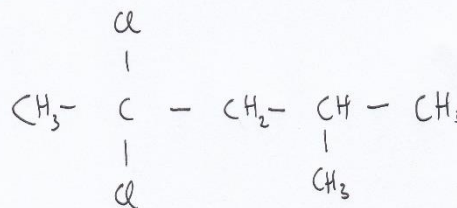 Cl
|
CH₃ – C – CH₂ – CH – CH₃
| |
Cl CH₃